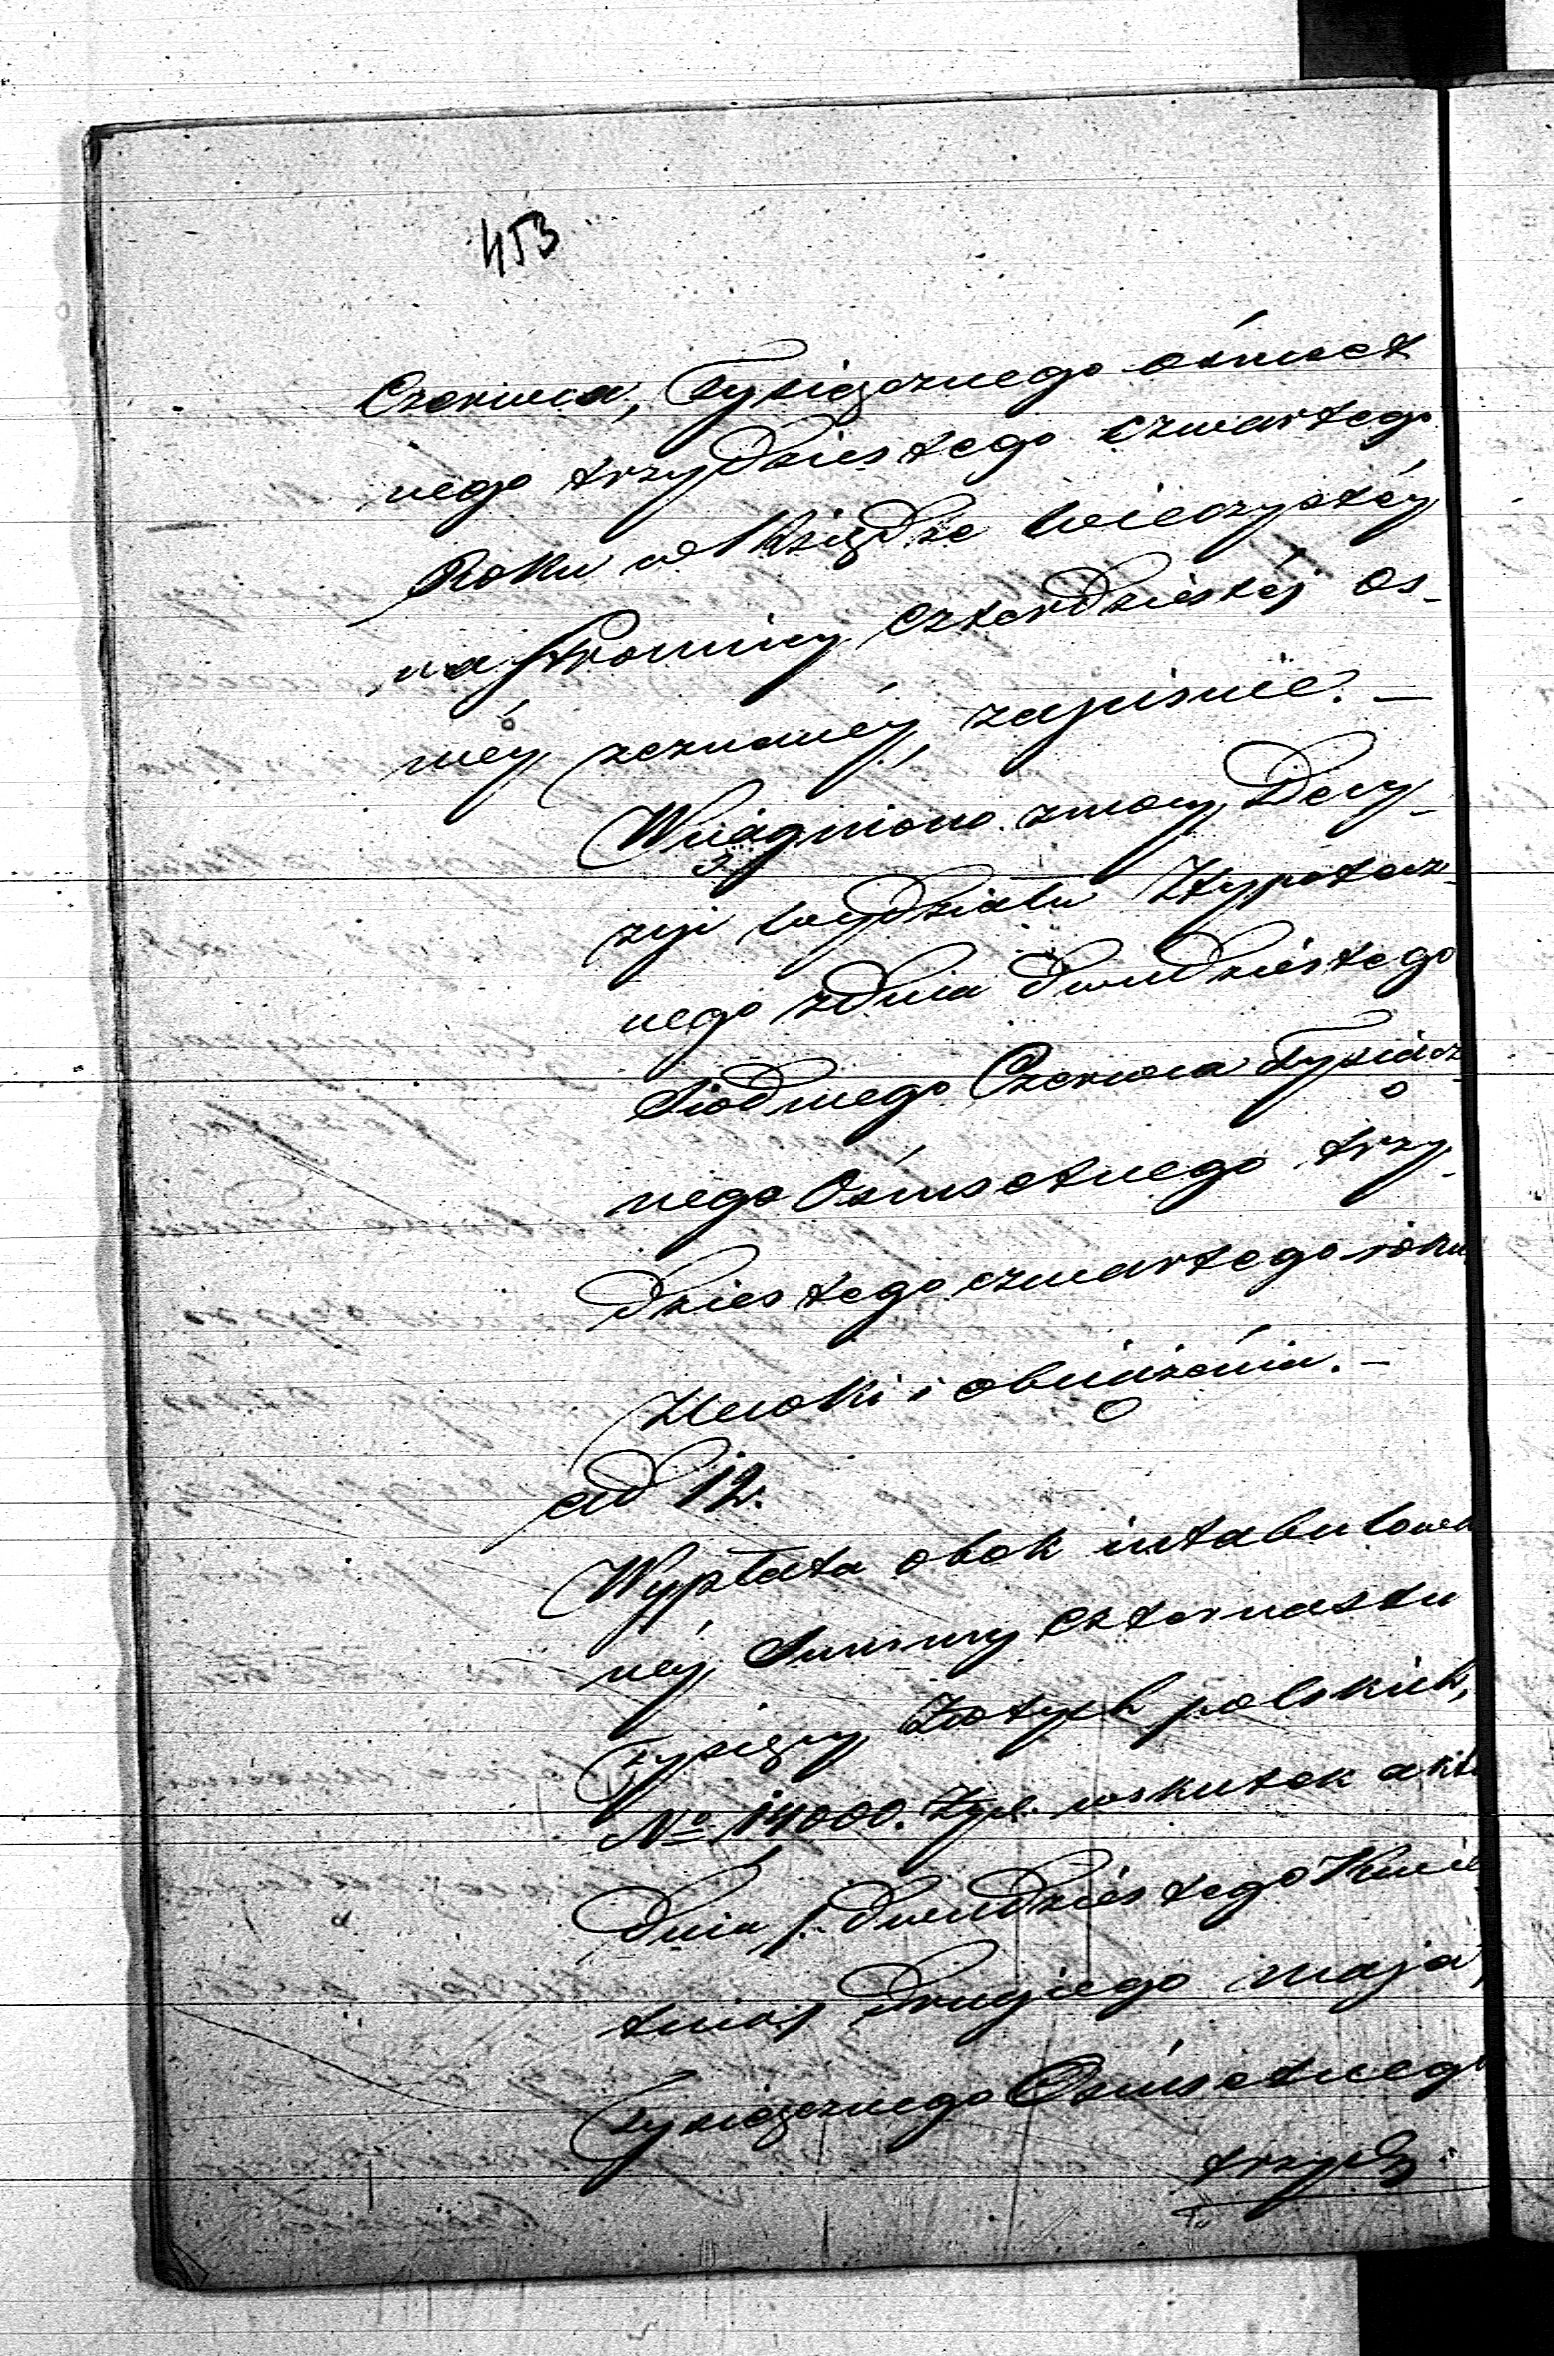 453
Czerwca, Tysiącznego ośmset
nego trzydziestego czwartego
Roku w Księdze wieczystéy
na stronnicy czterdziestéj ós-
méy zeznanéy, zapisuie. —
Wciągniono z mocy Decy-
zyi wydziału Hypotecz-
nego z dnia dwudziestego
Siodmego Czerwca Tysiącz-
nego Ośmsetnego trzy-
dziestego czwartego roku
Zlewki i obciążenia. —
ad 12.
Wypłata obok intabulowa
néj Summy czternastu
Tysięcy Złotych polskich,
№ 14000. Złp. wskutek aktu
dnia / dwudziestego Kwie
tnia / drugiego maja,
Tysiącznego Ośmsetnego
trzydz: